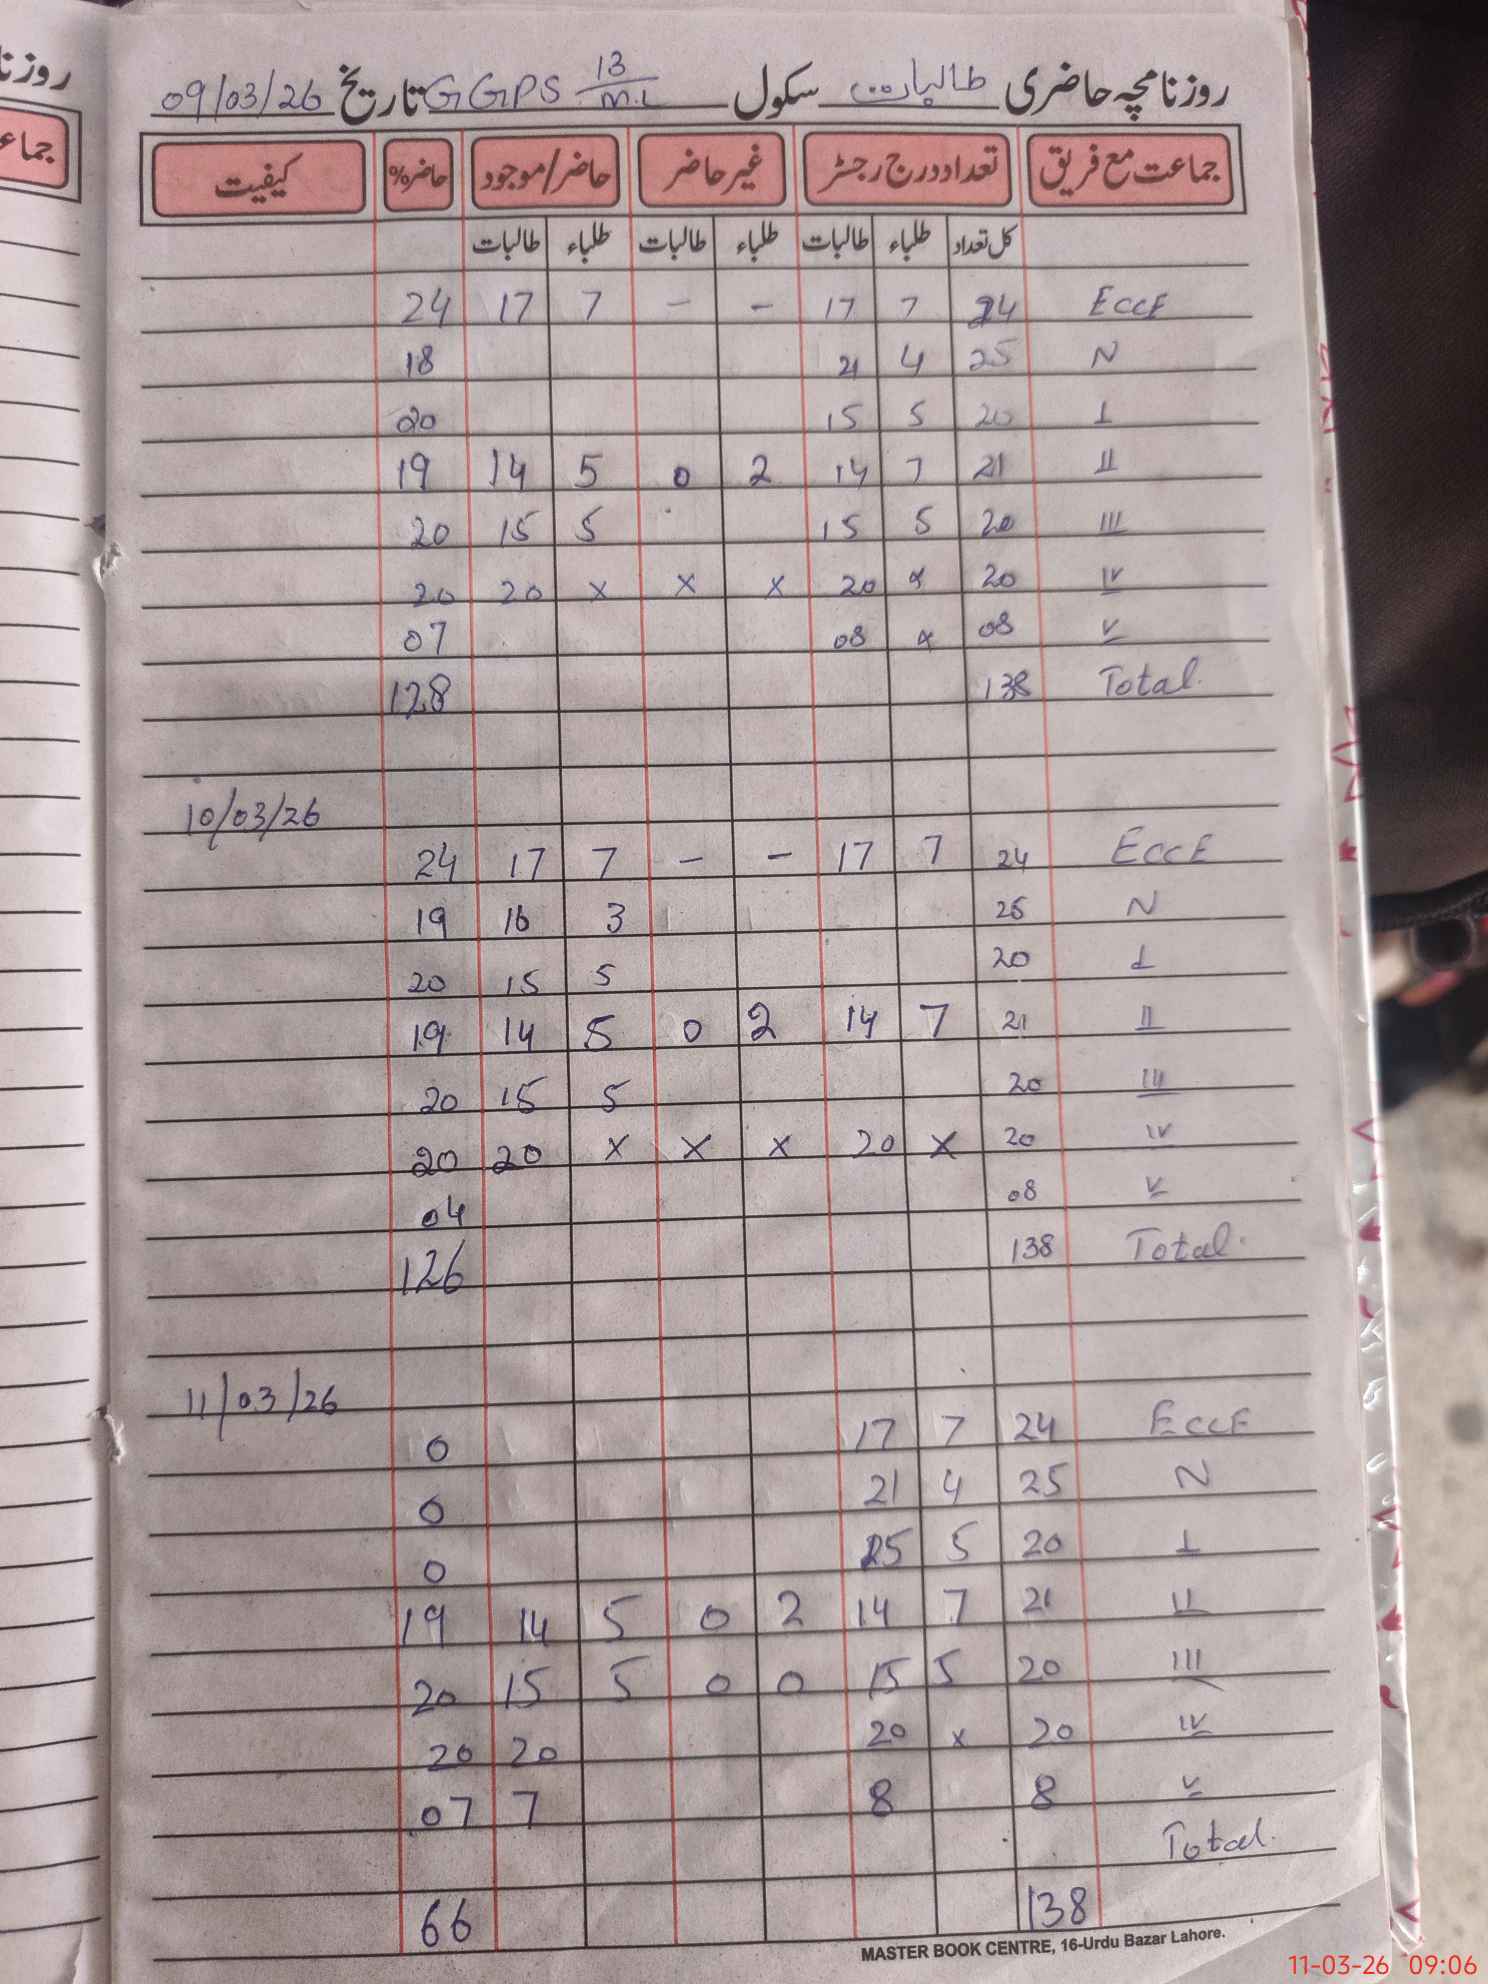 روزنامچہ حاضری طالبات سکول GGPS 13/M.L تاریخ 09/03/26
جماعت مع فریق تعداد درج رجسٹر غیر حاضر حاضر/موجود حاضر% کیفیت
کل تعداد طلباء طالبات طلباء طالبات طلباء طالبات
ECCE 24 7 17 - - 7 17 24
N 25 4 21 18
I 20 5 15 20
II 21 7 14 2 0 5 14 19
III 20 5 15 5 15 20
IV 20 x 20 x x x 20 20
V 08 x 08 07
Total. 138 128
10/03/26
ECCE 24 7 17 - - 7 17 24
N 25 3 16 19
I 20 5 15 20
II 21 7 14 2 0 5 14 19
III 20 5 15 20
IV 20 x 20 x x x 20 20
V 08 04
Total. 138 126
11/03/26
ECCE 24 7 17 0
N 25 4 21 0
I 20 5 25 0
II 21 7 14 2 0 5 14 19
III 20 5 15 0 0 5 15 20
IV 20 x 20 20 20
V 8 8 7 07
Total.
138 66
MASTER BOOK CENTRE, 16-Urdu Bazar Lahore.
11-03-26 09:06